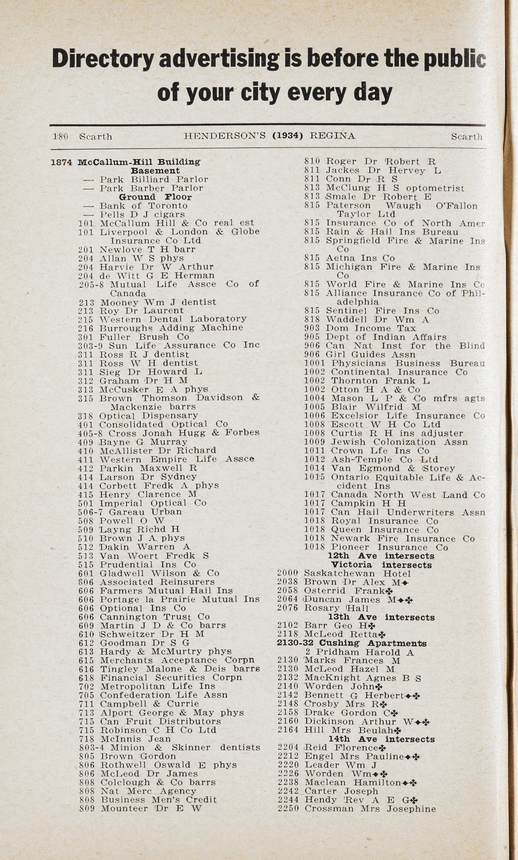 Directory advertising is before the public
of your city every day
180 Scarth HENDERSON'S (1934) REGINA Scarth
1874 McCallum-Hill Building
Basement
— Park Billiard Parlor
— Park Barber Parlor
Ground Floor
— Bank of Toronto
— Pells D J cigars
101 McCallum Hill & Co real est
101 Liverpool & London & Globe
Insurance Co Ltd
201 Newlove T H barr
204 Allan W S phys
204 Harvie Dr W Arthur
204 de Witt G E Herman
205-8 Mutual Life Assce Co of
Canada
213 Mooney Wm J dentist
213 Roy Dr Laurent
215 Western Dental Laboratory
216 Burroughs Adding Machine
301 Fuller Brush Co
303-9 Sun Life Assurance Co Inc
311 Ross R J dentist
311 Ross W H dentist
311 Sieg Dr Howard L
312 Graham Dr H M
313 McCusker E A phys
315 Brown Thomson Davidson &
Mackenzie barrs
318 Optical Dispensary
401 Consolidated Optical Co
405-8 Cross Jonah Hugg & Forbes
409 Bayne G Murray
410 McAllister Dr Richard
411 Western Empire Life Assce
412 Parkin Maxwell R
414 Larson Dr Sydney
414 Corbett Fredk A phys
415 Henry Clarence M
501 Imperial Optical Co
506-7 Gareau Urban
508 Powell O W
509 Layng Richd H
510 Brown J A phys
512 Dakin Warren A
513 Van Woert Fredk S
515 Prudential Ins Co
601 Gladwell Wilson & Co
606 Associated Reinsurers
606 Farmers Mutual Hail Ins
606 Portage la Prairie Mutual Ins
606 Optional Ins Co
606 Cannington Trust Co
609 Martin J D & Co barrs
610 Schweitzer Dr H M
612 Goodman Dr S G
613 Hardy & McMurtry phys
615 Merchants Acceptance Corpn
616 Tingley Malone & Deis barrs
618 Financial Securities Corpn
702 Metropolitan Life Ins
705 Confederation Life Assn
711 Campbell & Currie
713 Alport George & May phys
715 Can Fruit Distributors
715 Robinson C H Co Ltd
718 McInnis Jean
803-4 Minion & Skinner dentists
805 Brown Gordon
806 Rothwell Oswald E phys
806 McLeod Dr James
808 Colclough & Co barrs
808 Nat Merc Agency
808 Business Men's Credit
809 Mounteer Dr E W
810 Roger Dr Robert R
811 Jackes Dr Hervey L
811 Conn Dr R S
813 McClung H S optometrist
813 Smale Dr Robert E
815 Paterson Waugh O'Fallon
Taylor Ltd
815 Insurance Co of North Amer
815 Rain & Hail Ins Bureau
815 Springfield Fire & Marine Ins
Co
815 Aetna Ins Co
815 Michigan Fire & Marine Ins
Co
815 World Fire & Marine Ins Co
815 Alliance Insurance Co of Phil-
adelphia
815 Sentinel Fire Ins Co
818 Waddell Dr Wm A
903 Dom Income Tax
905 Dept of Indian Affairs
906 Can Nat Inst for the Blind
906 Girl Guides Assn
1001 Physicians Business Bureau
1002 Continental Insurance Co
1002 Thornton Frank L
1002 Otton H A & Co
1004 Mason L P & Co mfrs agts
1005 Blair Wilfrid M
1006 Excelsior Life Insurance Co
1008 Escott W H Co Ltd
1008 Curtis R H ins adjuster
1009 Jewish Colonization Assn
1011 Crown Lfe Ins Co
1012 Ash-Temple Co Ltd
1014 Van Egmond & Storey
1015 Ontario Equitable Life & Ac-
cident Ins
1017 Canada North West Land Co
1017 Campkin H H
1017 Can Hail Underwriters Assn
1018 Royal Insurance Co
1018 Queen Insurance Co
1018 Newark Fire Insurance Co
1018 Pioneer Insurance Co
12th Ave intersects
Victoria intersects
2000 Saskatchewan Hotel
2038 Brown Dr Alex M◆
2058 Osterrid Frank✤
2064 Duncan James M◆✤
2076 Rosary Hall
13th Ave intersects
2102 Barr Geo H✤
2118 McLeod Retta✤
2130-32 Cushing Apartments
2 Pridham Harold A
2130 Marks Frances M
2130 McLeod Hazel M
2132 MacKnight Agnes B S
2140 Worden John✤
2142 Bennett G Herbert◆✤
2148 Crosby Mrs R✤
2158 Drake Gordon C✤
2160 Dickinson Arthur W◆✤
2164 Hill Mrs Beulah✤
14th Ave intersects
2204 Reid Florence✤
2212 Engel Mrs Pauline◆✤
2220 Leader Wm J
2226 Worden Wm◆✤
2238 Maclean Hamilton◆✤
2242 Carter Joseph
2244 Hendy Rev A E G✤
2250 Crossman Mrs Josephine